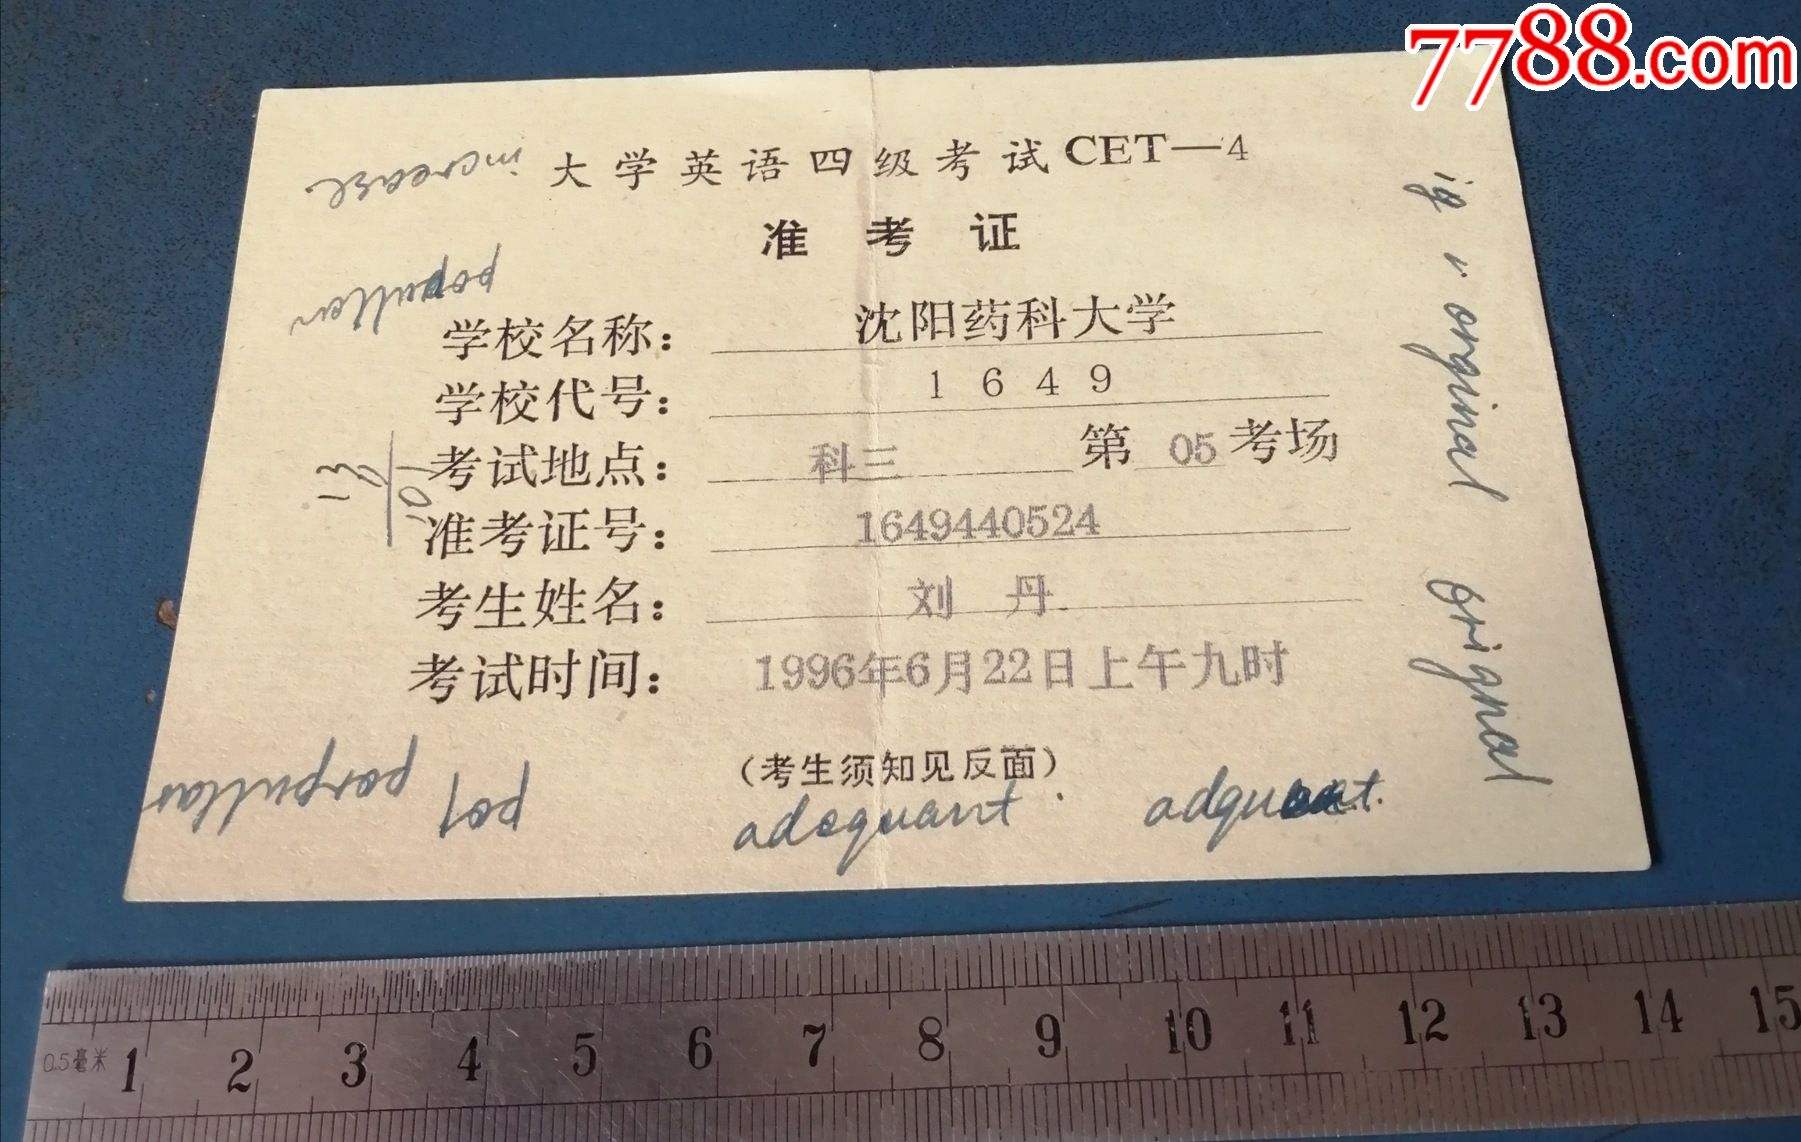 7788.com
大学英语四级考试CET—4
准考证
学校名称： 沈阳药科大学
学校代号： 1649
考试地点： 科三 第 05 考场
准考证号： 1649440524
考生姓名： 刘丹
考试时间： 1996年6月22日上午九时
（考生须知见反面）
increase
porpullar
pol
adequant
ig r orginal
orignal
0.5毫米 1 2 3 4 5 6 7 8 9 10 11 12 13 14 15